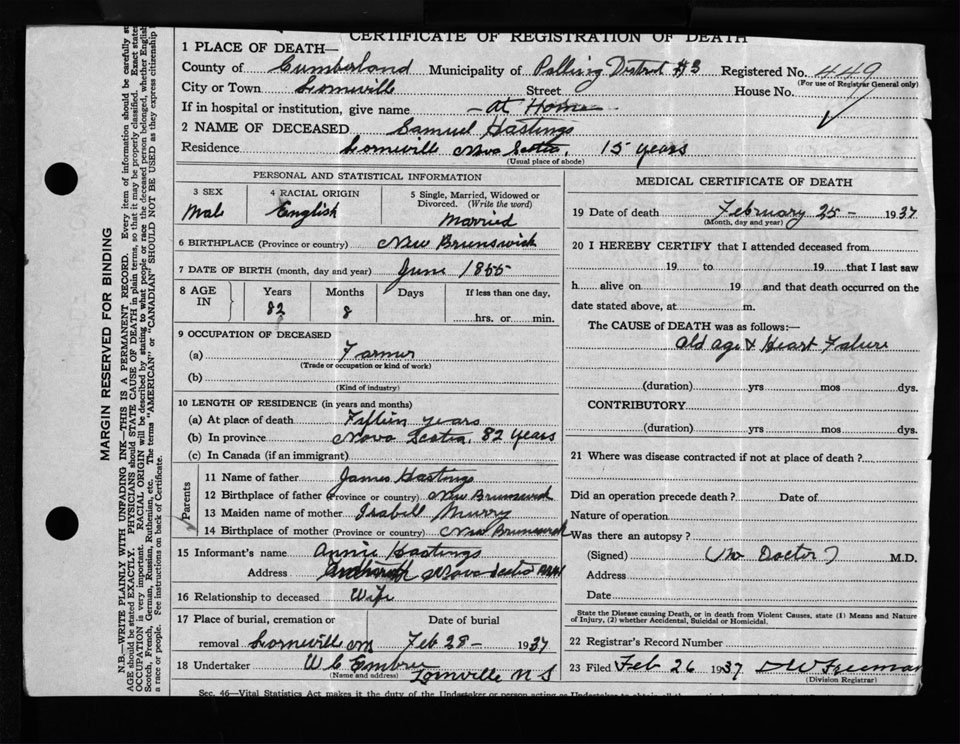 CERTIFICATE OF REGISTRATION OF DEATH
1 PLACE OF DEATH—
County of Cumberland Municipality of Polling District #3 Registered No. 449
(For use of Registrar General only)
City or Town Lorneville Street House No.
If in hospital or institution, give name — at Home —
2 NAME OF DECEASED Samuel Hastings
Residence Lorneville Nova Scotia, 15 years
(Usual place of abode)
PERSONAL AND STATISTICAL INFORMATION
3 SEX
Male
4 RACIAL ORIGIN
English
5 Single, Married, Widowed or
Divorced. (Write the word)
Married
6 BIRTHPLACE (Province or country) New Brunswick
7 DATE OF BIRTH (month, day and year) June 1855
8 AGE
IN
Years Months Days If less than one day,
82 8
hrs. or min.
9 OCCUPATION OF DECEASED
(a) Farmer
(Trade or occupation or kind of work)
(b)
(Kind of industry)
10 LENGTH OF RESIDENCE (in years and months)
(a) At place of death Fifteen years
(b) In province Nova Scotia, 82 years
(c) In Canada (if an immigrant)
Parents
11 Name of father James Hastings
12 Birthplace of father (Province or country) New Brunswick
13 Maiden name of mother Isabell Murry
14 Birthplace of mother (Province or country) New Brunswick
15 Informant's name Annie Hastings
Address Nova Scotia
16 Relationship to deceased Wife
17 Place of burial, cremation or Date of burial
removal Lorneville Feb 28 — 1937
18 Undertaker W C Embree
(Name and address) Lornville N S
MEDICAL CERTIFICATE OF DEATH
19 Date of death February 25 — 1937
(Month, day and year)
20 I HEREBY CERTIFY that I attended deceased from
19 to 19 that I last saw
h alive on 19 and that death occurred on the
date stated above, at m.
The CAUSE of DEATH was as follows:—
old age & Heart Falure
(duration) yrs mos dys.
CONTRIBUTORY
(duration) yrs mos dys.
21 Where was disease contracted if not at place of death?
Did an operation precede death? Date of
Nature of operation
Was there an autopsy?
(Signed) (No Doctor) M.D.
Address
Date
State the Disease causing Death, or in death from Violent Causes, state (1) Means and Nature
of Injury, (2) whether Accidental, Suicidal or Homicidal.
22 Registrar's Record Number
23 Filed Feb 26 1937 D W Freeman
(Division Registrar)
Sec. 46—Vital Statistics Act makes it the duty of the Undertaker or person acting as Undertaker to obtain all the
MARGIN RESERVED FOR BINDING
N.B.—WRITE PLAINLY WITH UNFADING INK—THIS IS A PERMANENT RECORD. Every item of information should be carefully
AGE should be stated EXACTLY. PHYSICIANS should STATE CAUSE OF DEATH in plain terms, so that it may be properly classified. Exact
OCCUPATION is very important. RACIAL ORIGIN will be described by stating to what people or race the deceased person belonged, whether English,
Scotch, French, German, Russian, Ruthenian, etc. The terms "AMERICAN" or "CANADIAN" SHOULD NOT BE USED as they express citizenship
a race or people. See instructions on back of Certificate.